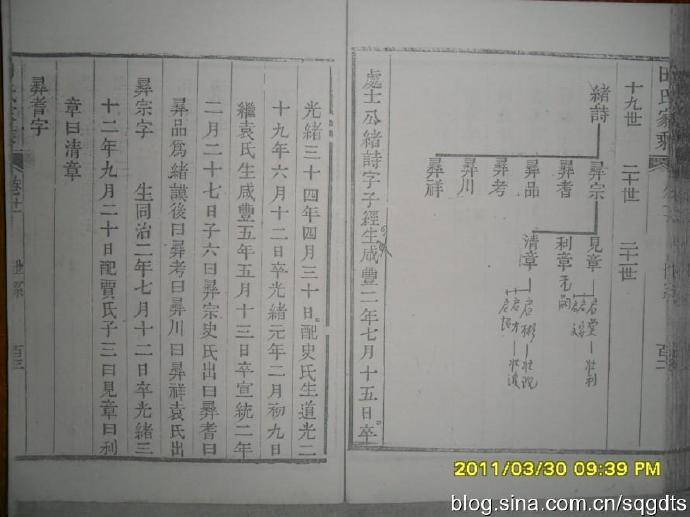 田氏家乘
十九世
二十世
二十一世
緒詩
彛宗
彛耆
彛品
彛考
彛川
彛祥
見章
利章
清章
處士公緒詩字子經生咸豐二年七月十五日卒
光緒三十四年四月三十日配史氏生道光二
十九年六月十二日卒光緒元年二月初九日
繼袁氏生咸豐五年五月十三日卒宣統二年
二月二十七日子六曰彛宗史氏出曰彛耆曰
彛品爲緒謨後曰彛考曰彛川曰彛祥袁氏出
彛宗字　生同治二年七月十二日卒光緒三
十二年九月二十日配賈氏子三曰見章曰利
章曰清章
彛耆字
世系
2011/03/30 09:39 PM
blog.sina.com.cn/sqgdts